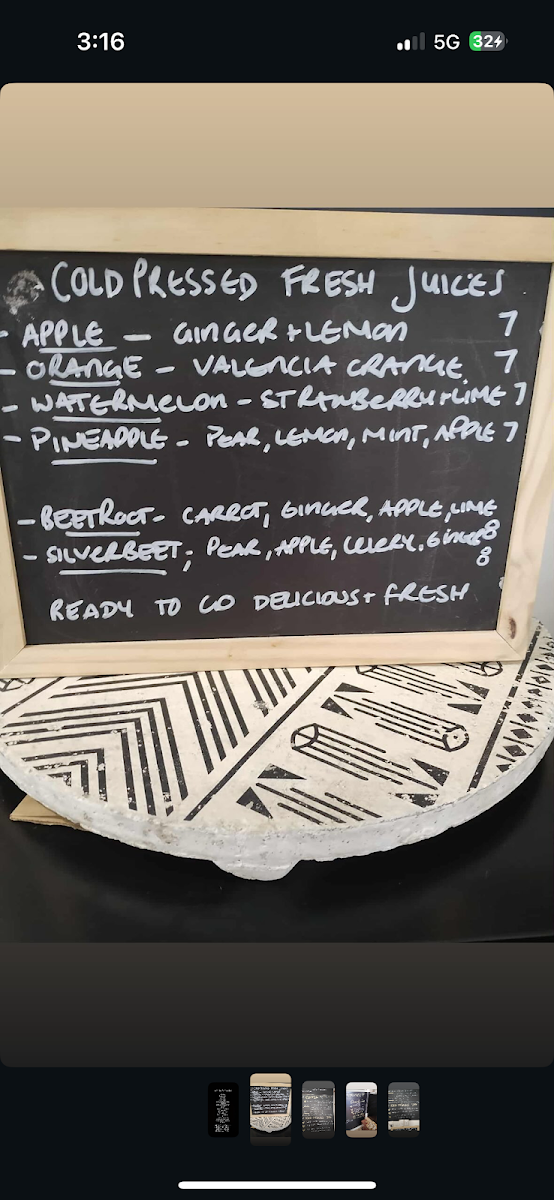 3:16 5G 32
COLD PRESSED FRESH JUICES
- APPLE - GINGER + LEMON 7
- ORANGE - VALENCIA ORANGE 7
- WATERMELON - STRAWBERRY + LIME 7
- PINEAPPLE - PEAR, LEMON, MINT, APPLE 7
- BEETROOT - CARROT, GINGER, APPLE, LIME 8
- SILVERBEET; PEAR, APPLE, CELERY, GINGER 8
READY TO GO DELICIOUS + FRESH